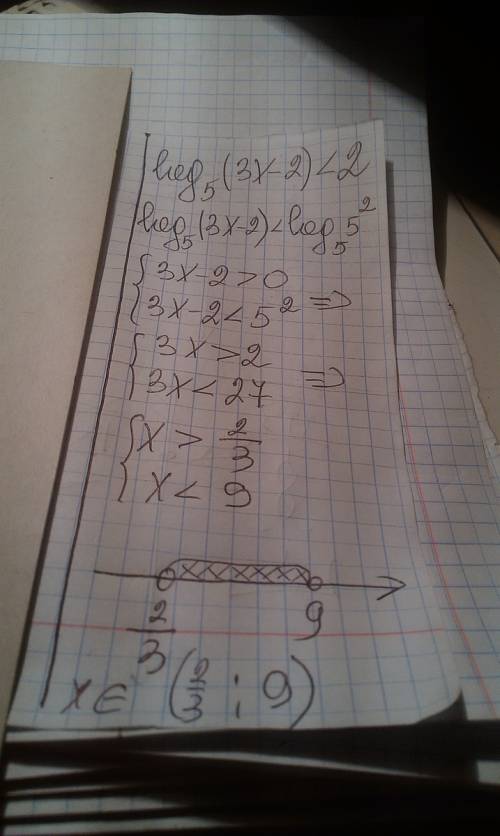 log₅(3x-2)<2
log₅(3x-2)<log₅5²
{3x-2>0
{3x-2<5² =>
{3x>2
{3x<27 =>
{x>2/3
{x<9
2/3 9
x∈(2/3;9)